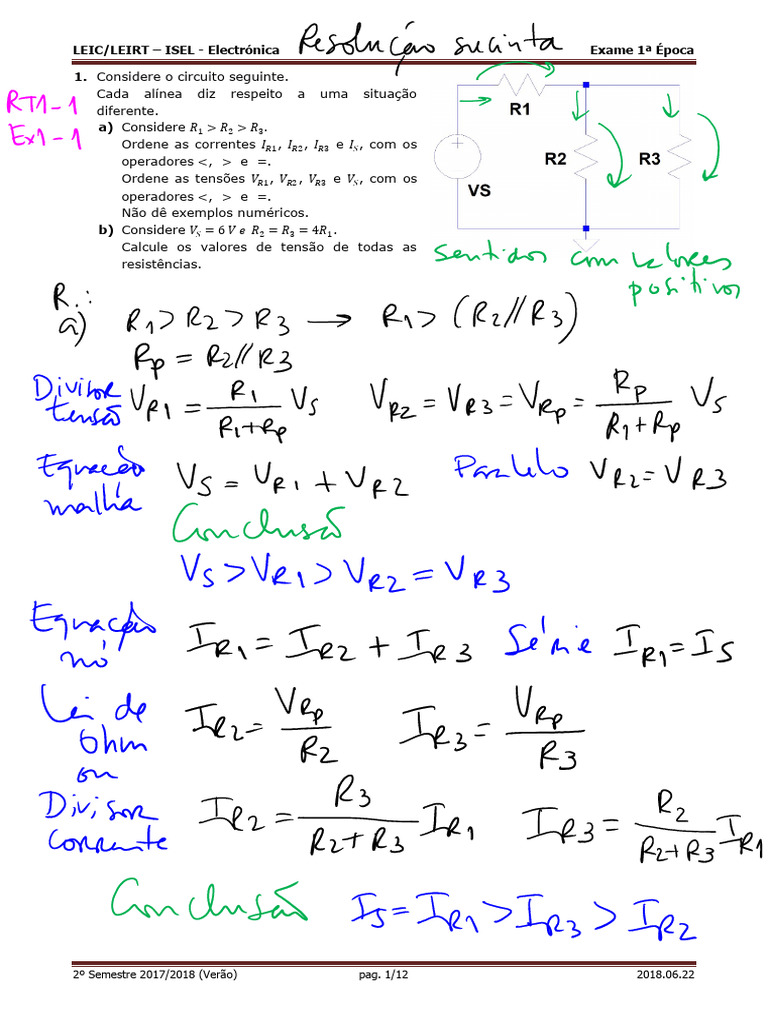 LEIC/LEIRT – ISEL - Electrónica
Resolução sucinta
Exame 1ª Época
RT1-1
Ex1-1
1. Considere o circuito seguinte.
Cada alínea diz respeito a uma situação
diferente.
a) Considere R1 > R2 > R3.
Ordene as correntes IR1, IR2, IR3 e IS, com os
operadores <, > e =.
Ordene as tensões VR1, VR2, VR3 e VS, com os
operadores <, > e =.
Não dê exemplos numéricos.
b) Considere VS = 6 V e R2 = R3 = 4R1.
Calcule os valores de tensão de todas as
resistências.
R1
R2
R3
VS
+
-
sentidos com valores
positivos
R.:
a) R1 > R2 > R3 → R1 > (R2//R3)
Rp = R2//R3
Divisor
tensão
VR1 = R1/(R1+Rp) VS VR2 = VR3 = VRp = Rp/(R1+Rp) VS
Equação
malha
VS = VR1 + VR2 Paralelo VR2 = VR3
Conclusão
VS > VR1 > VR2 = VR3
Equação
nó
IR1 = IR2 + IR3 Série IR1 = IS
Lei de
Ohm
ou
IR2 = VRp/R2 IR3 = VRp/R3
Divisor
corrente
IR2 = R3/(R2+R3) IR1 IR3 = R2/(R2+R3) IR1
Conclusão IS = IR1 > IR3 > IR2
2º Semestre 2017/2018 (Verão) pag. 1/12 2018.06.22